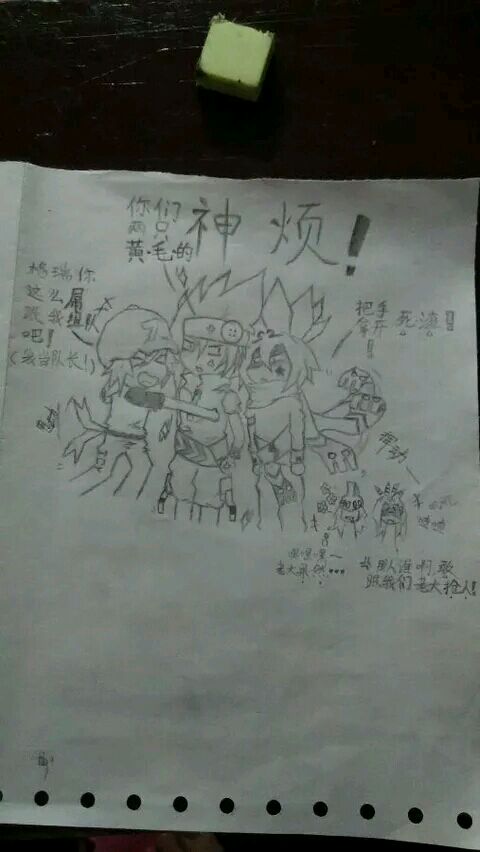 你们
两只
黄·毛·的
神烦！
格瑞你
这么屌
跟我组队
吧！
（我当队长！）
把手
拿开
死渣！
挥动
嘿嘿嘿~
老大果然……
卡
那人谁啊敢
跟我们老大抢人！